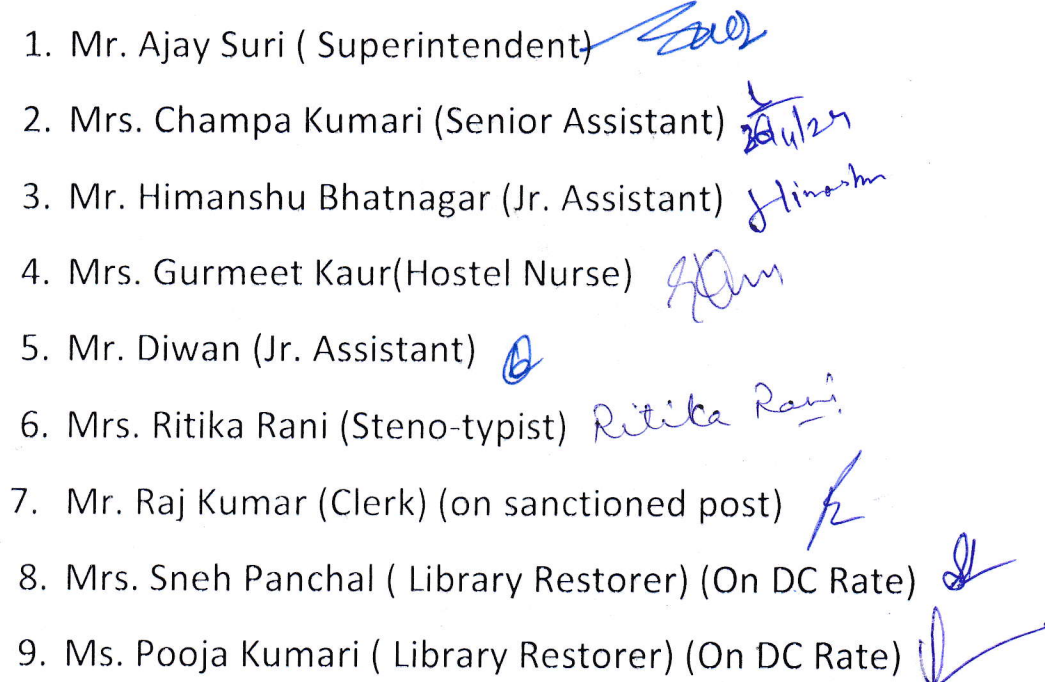 1. Mr. Ajay Suri ( Superintendent)
2. Mrs. Champa Kumari (Senior Assistant)
3. Mr. Himanshu Bhatnagar (Jr. Assistant) Himanshu
4. Mrs. Gurmeet Kaur(Hostel Nurse)
5. Mr. Diwan (Jr. Assistant)
6. Mrs. Ritika Rani (Steno-typist) Ritika Rani
7. Mr. Raj Kumar (Clerk) (on sanctioned post)
8. Mrs. Sneh Panchal ( Library Restorer) (On DC Rate)
9. Ms. Pooja Kumari ( Library Restorer) (On DC Rate)